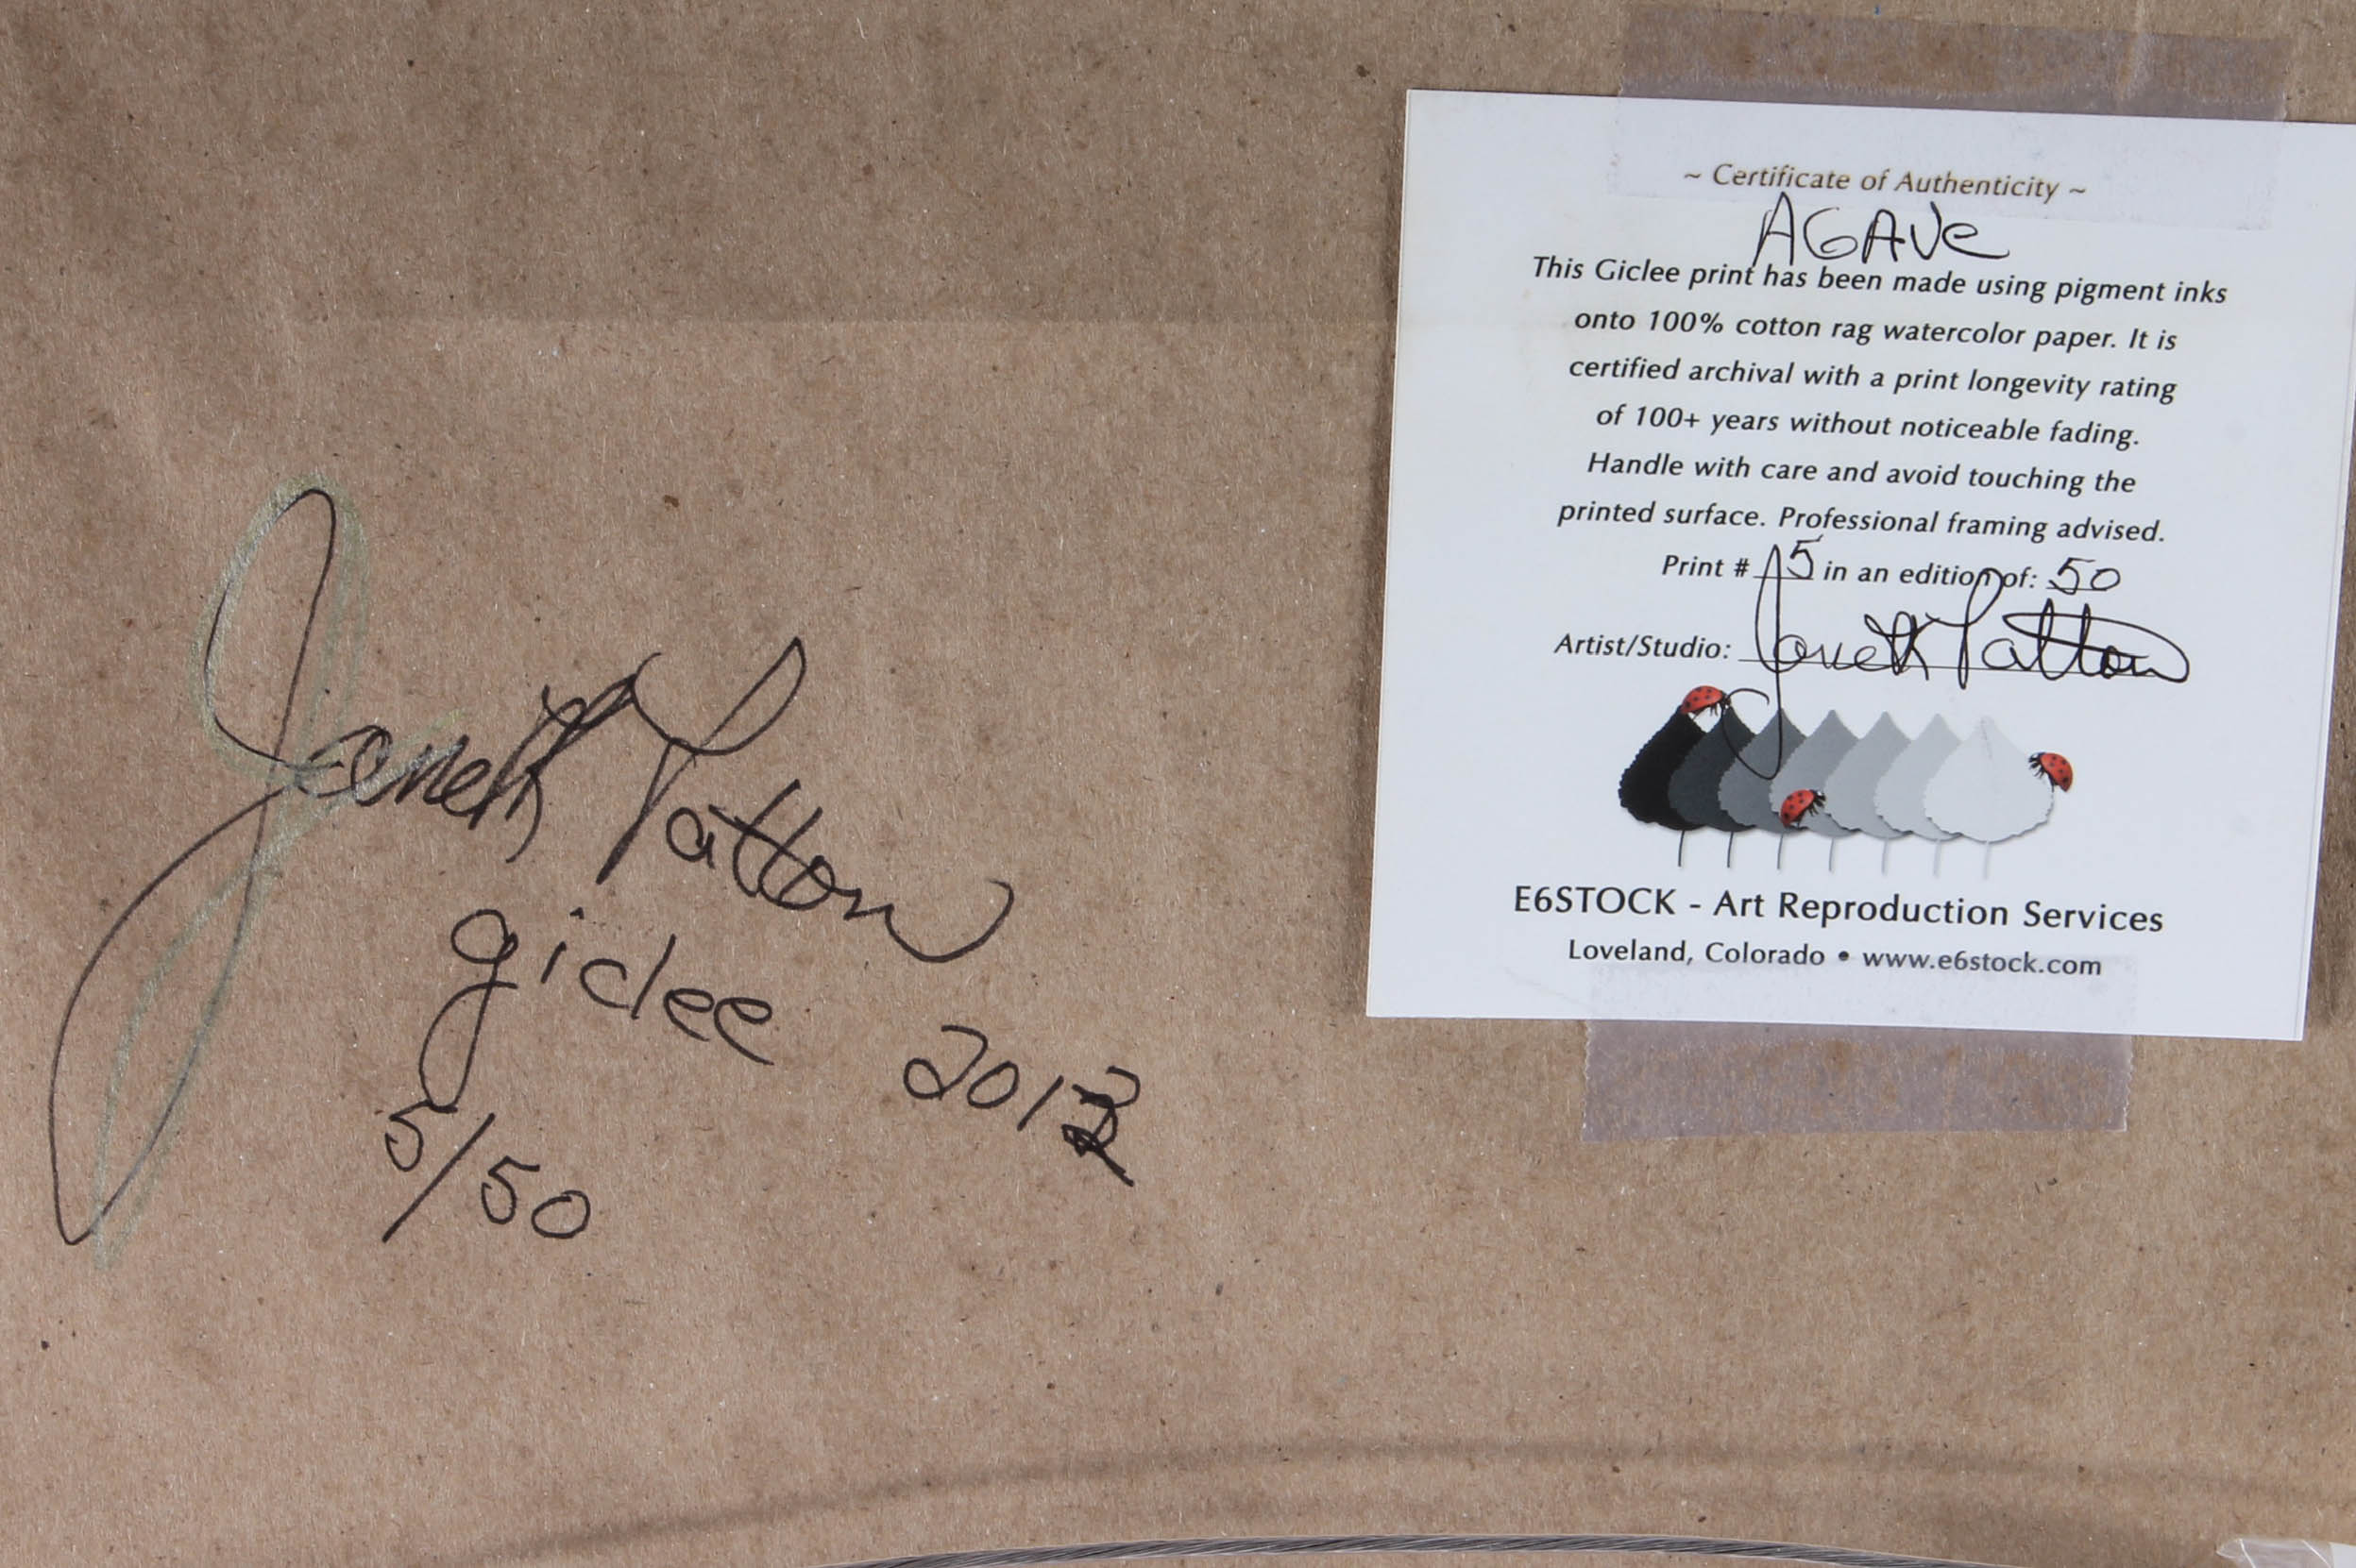 Janett Patton
giclee 2012
5/50
~ Certificate of Authenticity ~
AGAVe
This Giclee print has been made using pigment inks
onto 100% cotton rag watercolor paper. It is
certified archival with a print longevity rating
of 100+ years without noticeable fading.
Handle with care and avoid touching the
printed surface. Professional framing advised.
Print # 5 in an edition of: 50
Artist/Studio: Janett Patton
E6STOCK - Art Reproduction Services
Loveland, Colorado • www.e6stock.com